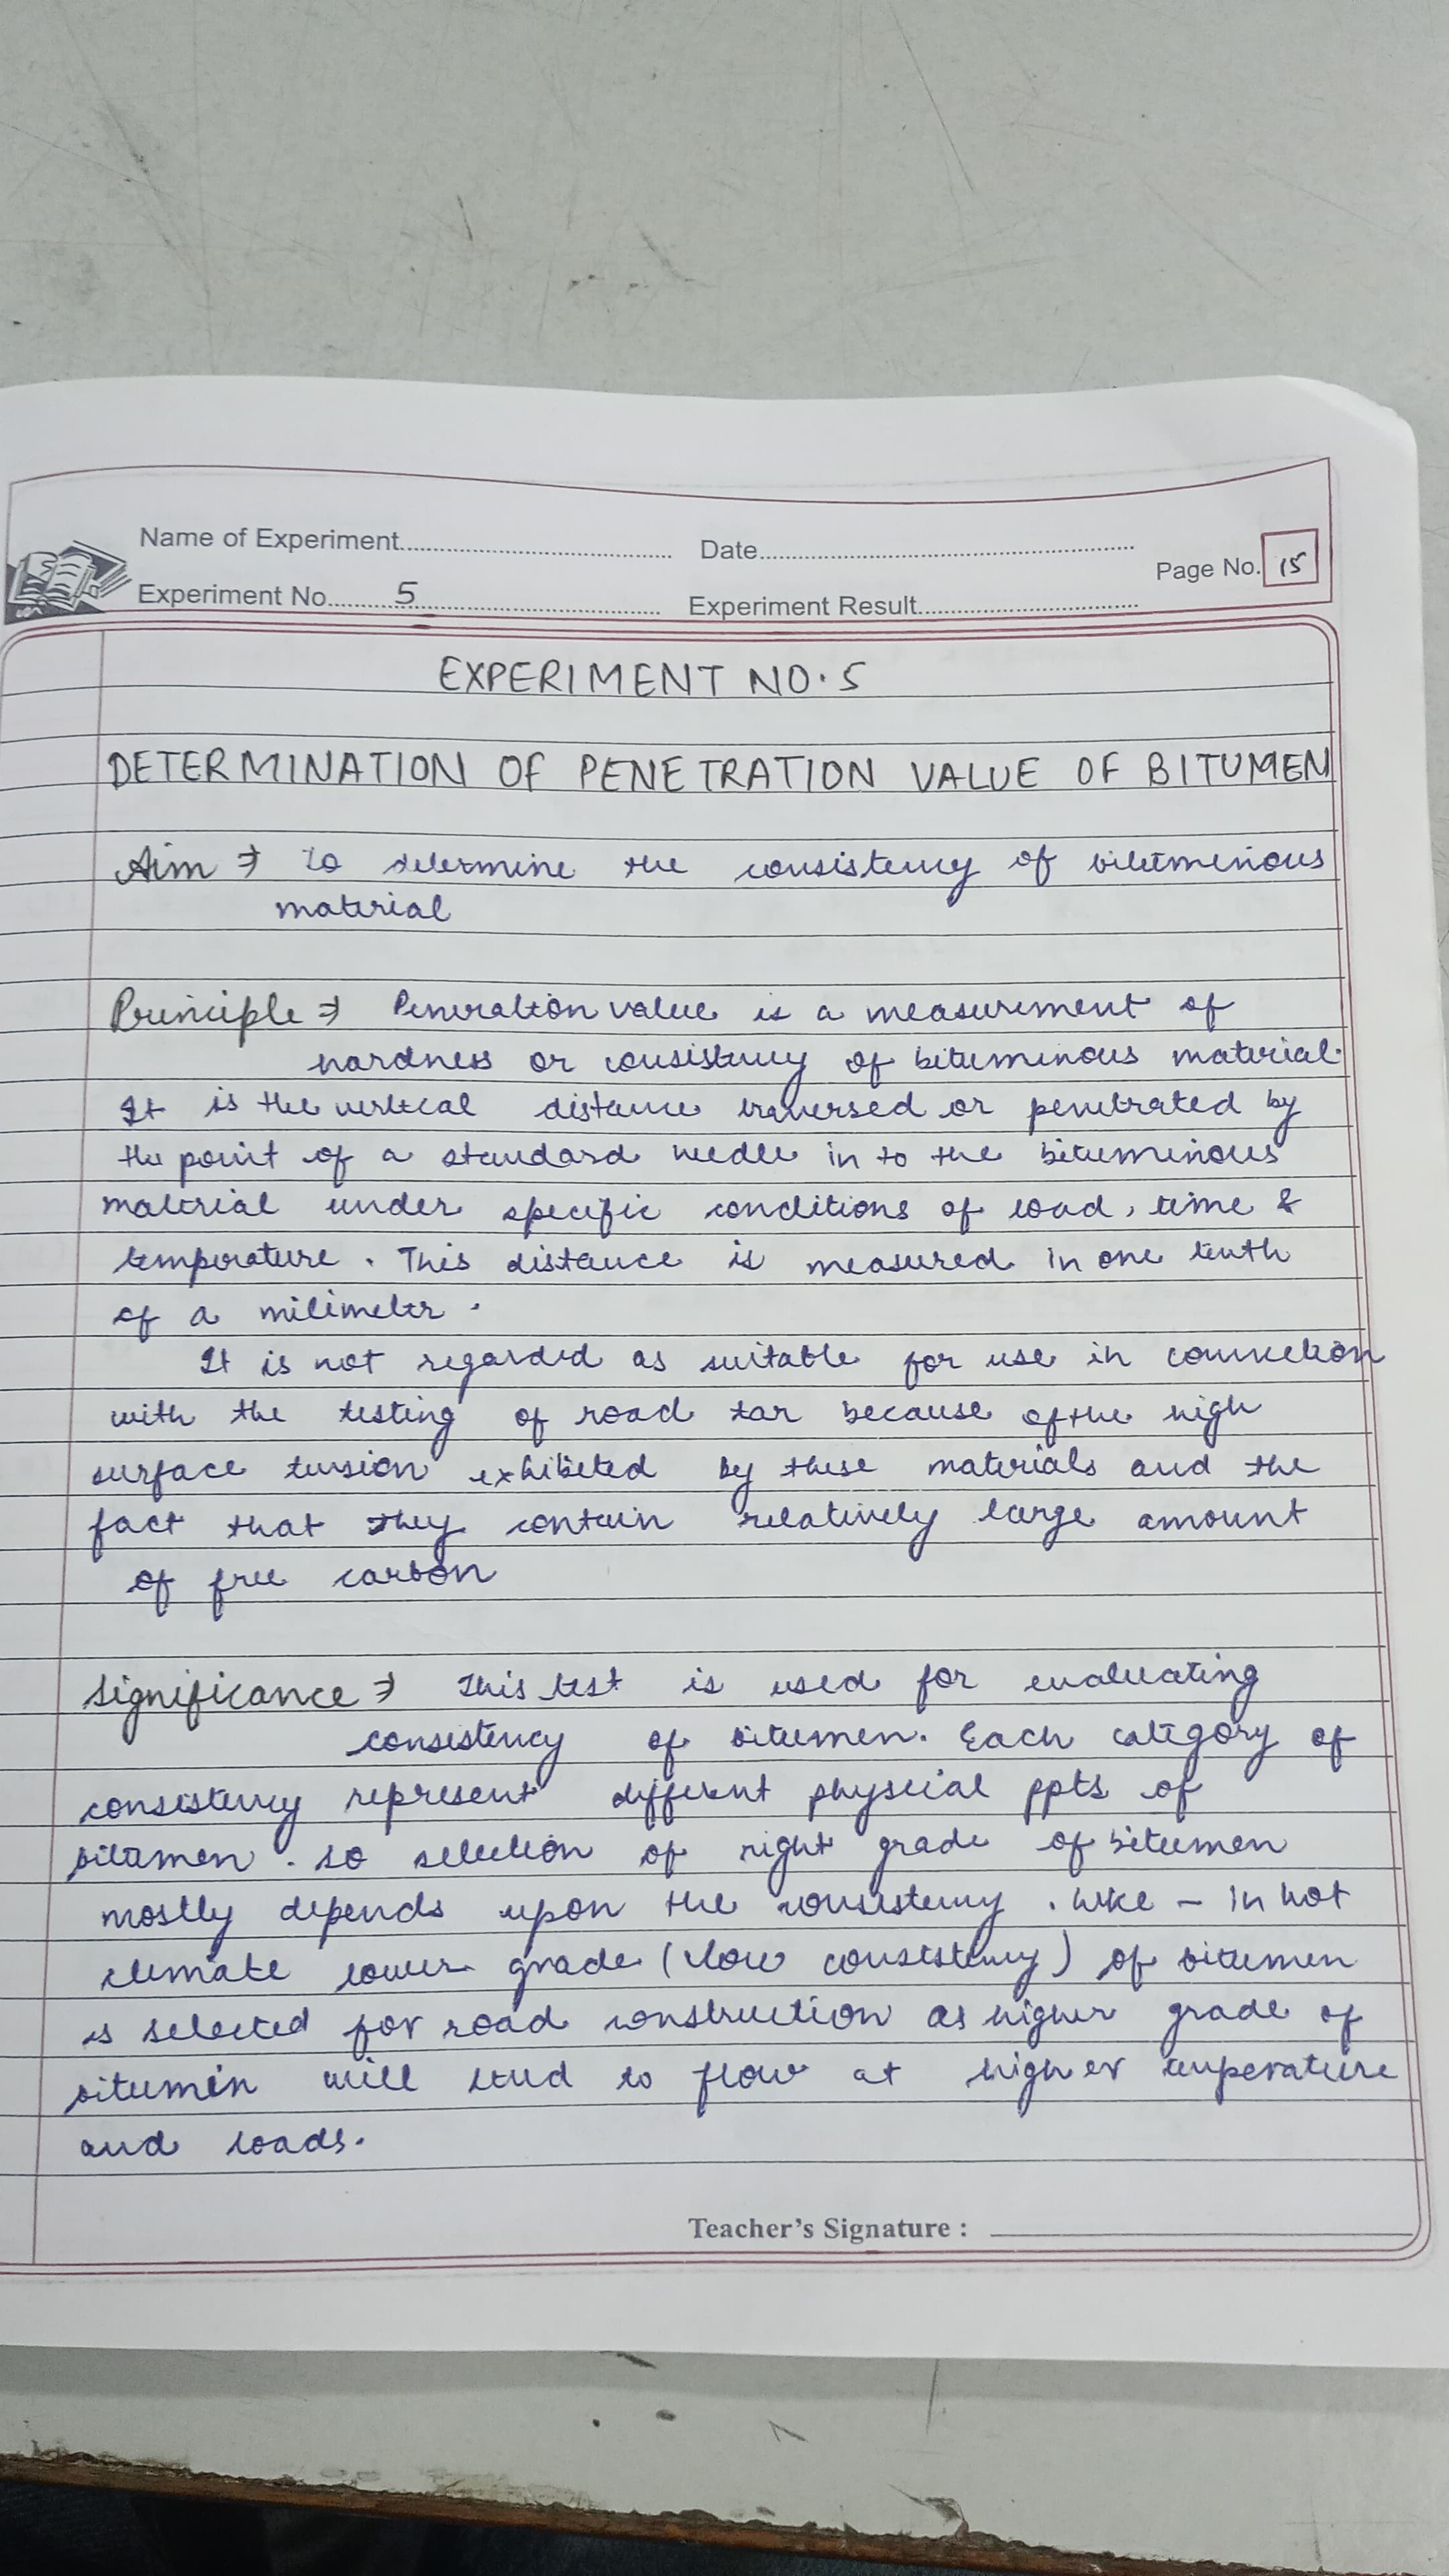 Name of Experiment.................... Date....................
Page No. 15
Experiment No. 5 Experiment Result....................
EXPERIMENT NO. 5
DETERMINATION OF PENETRATION VALUE OF BITUMEN
Aim ⇒ To determine the consistency of bituminous
material
Principle ⇒ Peneration value is a measurement of
hardness or consistency of bituminous material.
It is the vertical distance traversed or penetrated by
the point of a standard needle in to the bituminous
material under specific conditions of load, time &
temperature. This distance is measured in one tenth
of a milimeter.
It is not regarded as suitable for use in connection
with the testing of road tar because of the high
surface tension exhibited by these materials and the
fact that they contain relatively large amount
of free carbon
Significance ⇒ This test is used for evaluating
consistency of bitumen. Each category of
consistency represent different physcial ppts of
bitumen. so selection of right grade of bitumen
mostly depends upon the consistency. like - In hot
climate lower grade (low consistency) of bitumen
is selected for road construction as higher grade of
bitumen will tend to flow at higher temperature
and loads.
Teacher's Signature :